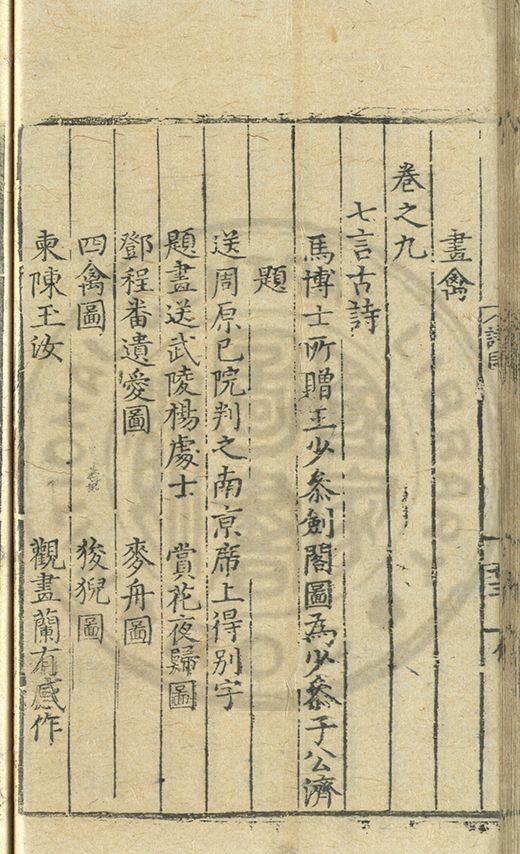 畫禽
卷之九
七言古詩
馬博士所贈王少參劍閣圖爲少參子公濟
題
送周原已院判之南京席上得别字
題畫送武陵楊處士　賞花夜歸圖
鄧程番遺愛圖　麥舟圖
四禽圖　狻猊圖
柬陳玉汝　觀畫蘭有感作